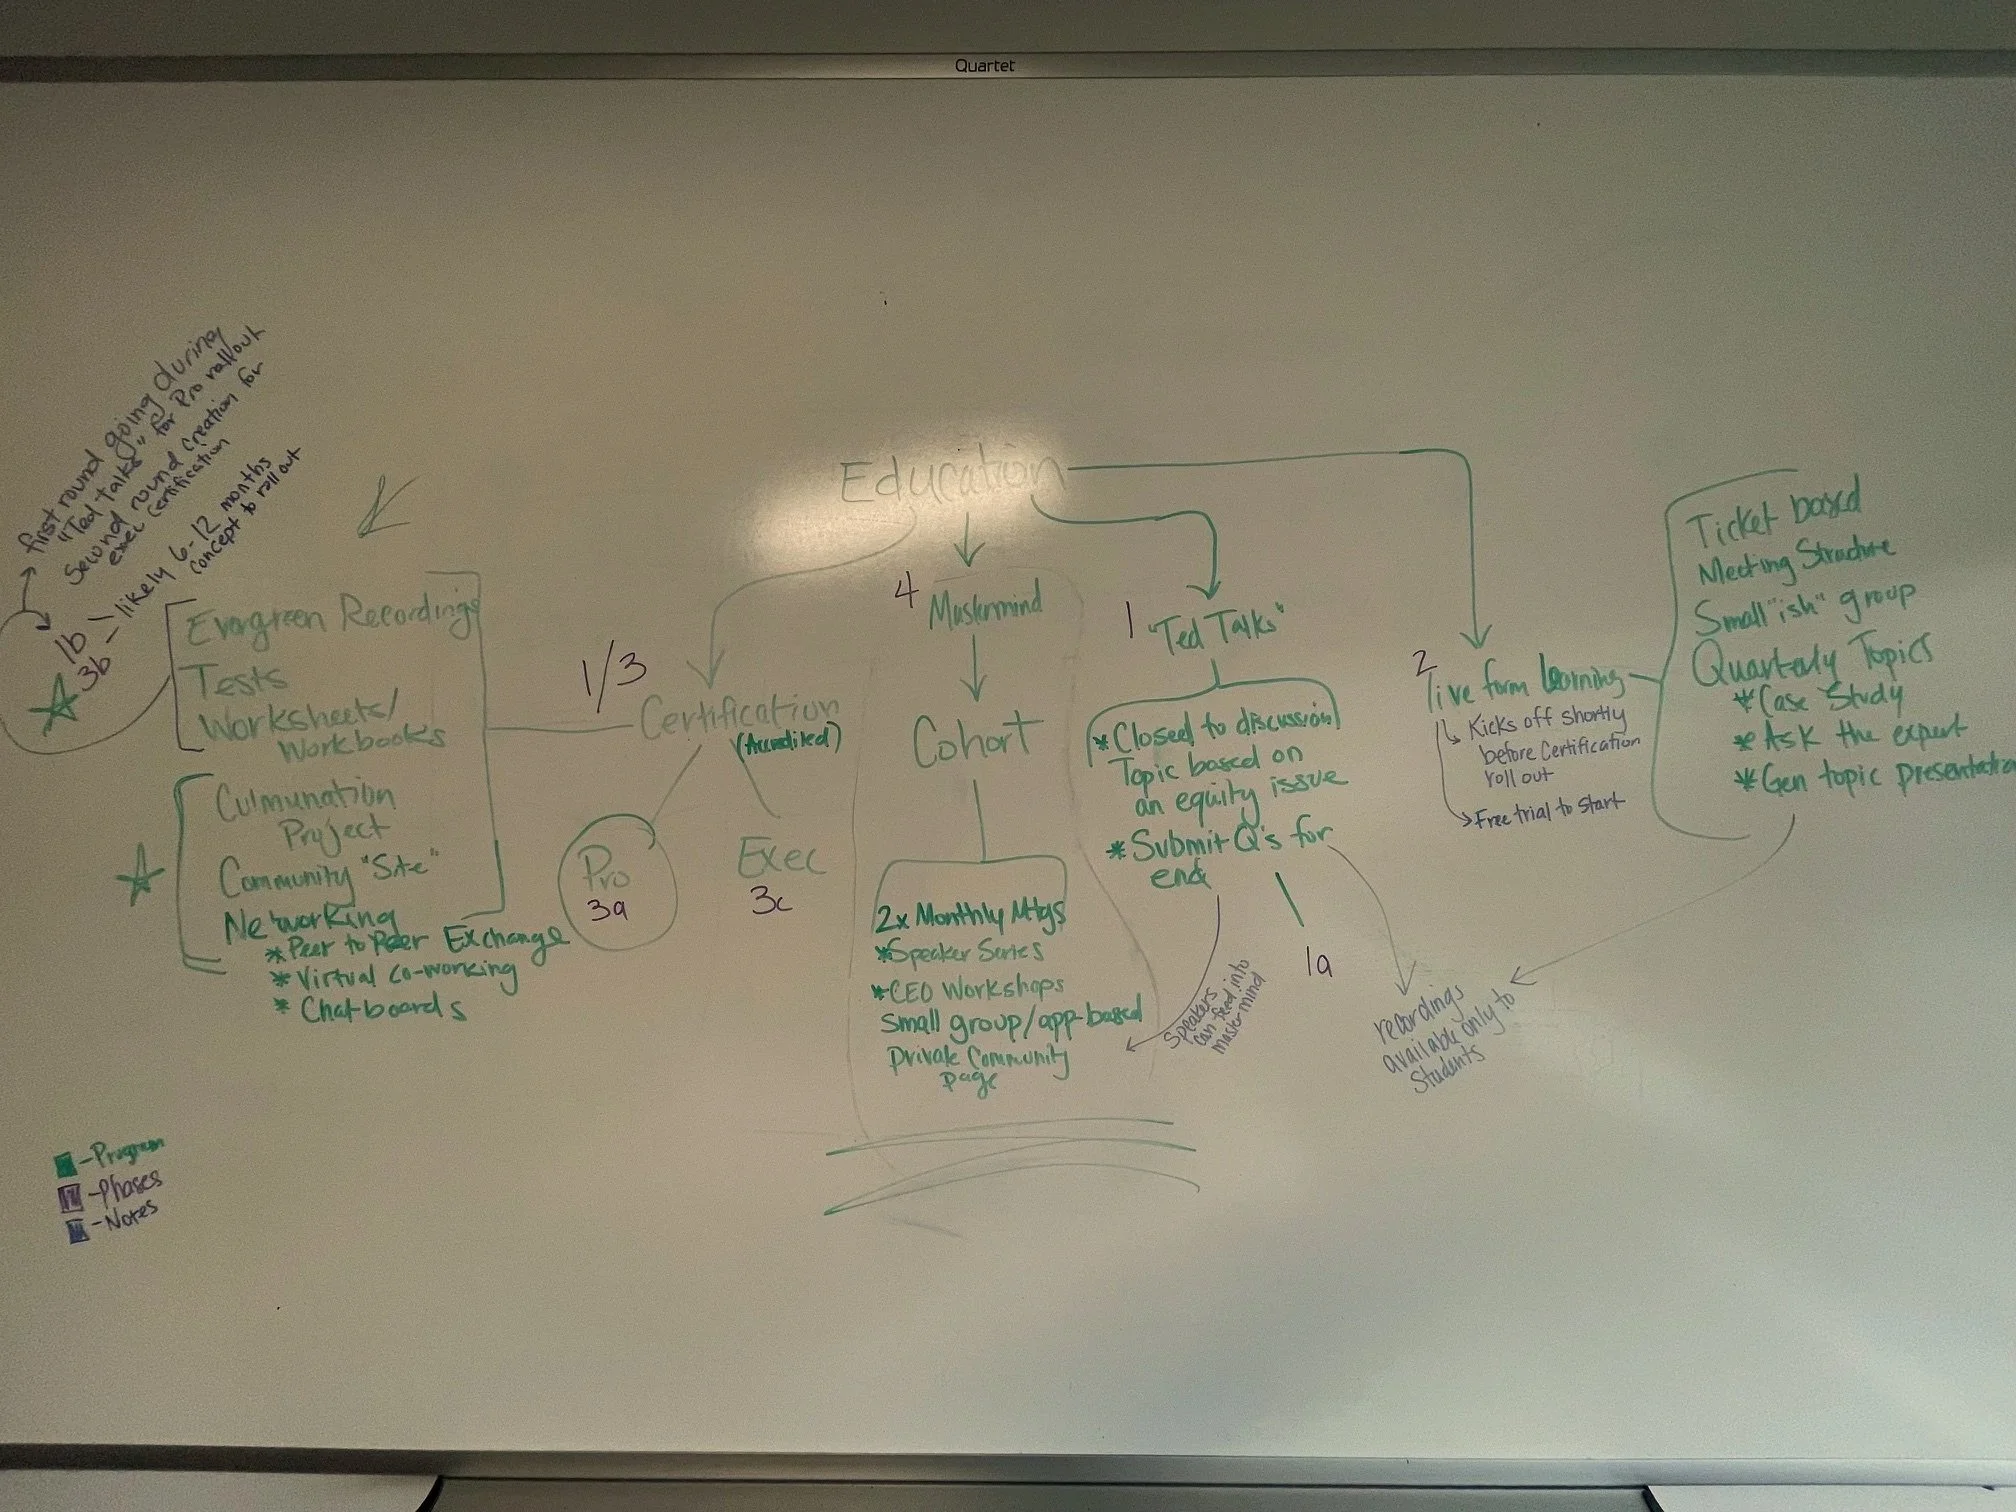 Quartet
first round going during
"Ted Talks" for Pro roll out
Second round creation for
exec certification
1b
3b - likely 6-12 months
concept to roll out
Evergreen Recordings
Tests
Worksheets/
Workbooks
Culmunation
Project
Community "Site"
Networking
* Peer to Peer Exchange
* Virtual co-working
* Chat boards
Education
1/3
Certification
(Accredited)
Pro
3a
Exec
3c
4
Mastermind
Cohort
2x Monthly Mtgs
* Speaker Series
* CEO Workshops
Small group/app-based
Private Community
page
1
"Ted Talks"
* Closed to discussion
Topic based on
an equity issue
* Submit Q's for
end
1a
Speakers
can feed into
mastermind
recordings
available only to
Students
2
live form learning
Kicks off shortly
before Certification
roll out
Free trial to start
Ticket based
Meeting Structure
Small "ish" group
Quarterly Topics
* Case Study
* Ask the expert
* Gen topic presentation
- Program
- Phases
- Notes